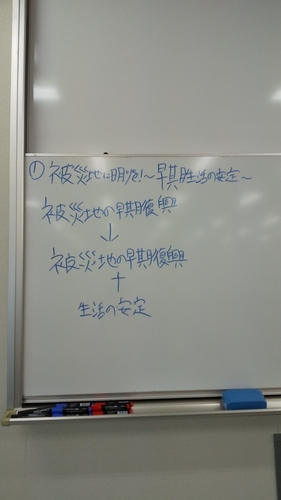 ①被災地に明りを!～早期生活の安定～
被災地の早期復興
↓
被災地の早期復興
+
生活の安定